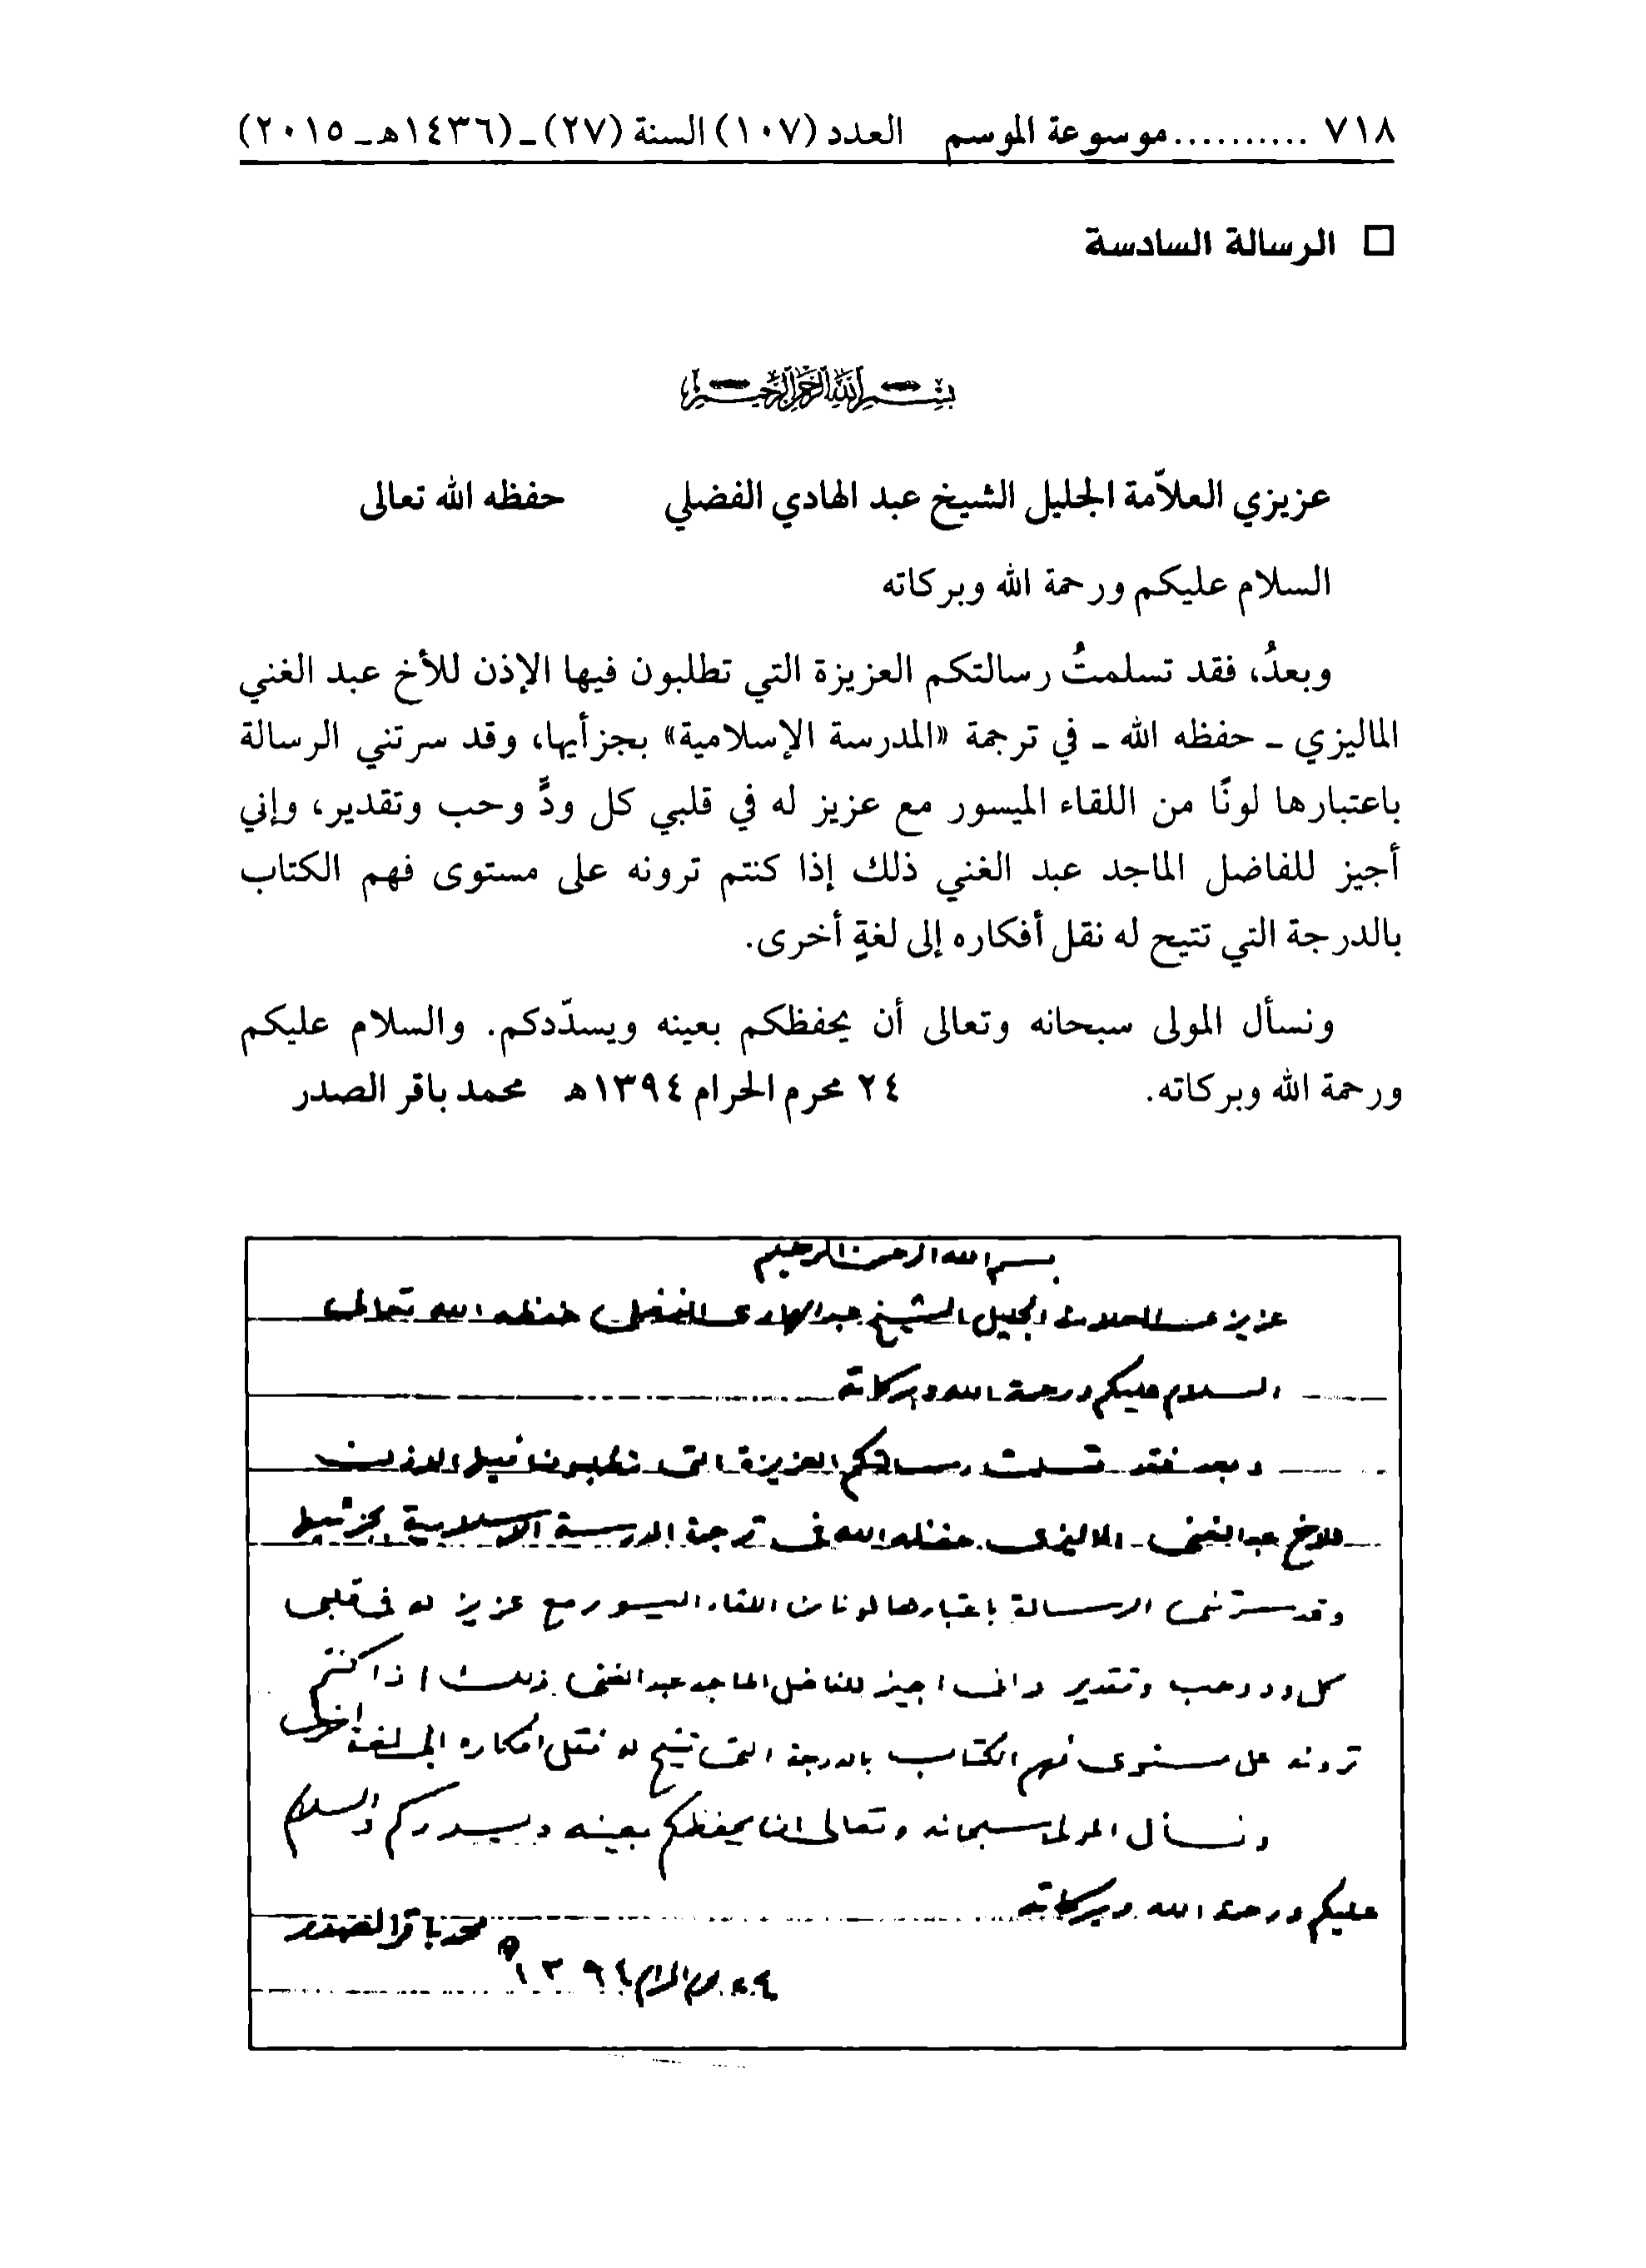 ٧١٨ ..........موسوعة الموسم العدد (١٠٧) السنة (٢٧) ـ (١٤٣٦هـ ـ ٢٠١٥)
□ الرسالة السادسة
بسم الله الرحمن الرحيم
عزيزي العلاّمة الجليل الشيخ عبد الهادي الفضلي حفظه الله تعالى
السلام عليكم ورحمة الله وبركاته
وبعدُ، فقد تسلمتُ رسالتكم العزيزة التي تطلبون فيها الإذن للأخ عبد الغني
الماليزي ـ حفظه الله ـ في ترجمة «المدرسة الإسلامية» بجزأيها، وقد سرتني الرسالة
باعتبارها لونًا من اللقاء الميسور مع عزيز له في قلبي كل ودًّ وحب وتقدير، وإني
أجيز للفاضل الماجد عبد الغني ذلك إذا كنتم ترونه على مستوى فهم الكتاب
بالدرجة التي تتيح له نقل أفكاره إلى لغةٍ أخرى.
ونسأل المولى سبحانه وتعالى أن يحفظكم بعينه ويسدّدكم. والسلام عليكم
ورحمة الله وبركاته. ٢٤ محرم الحرام ١٣٩٤هـ محمد باقر الصدر
بسم الله الرحمن الرحيم
عزيزي العلامة الجليل الشيخ عبد الهادي الفضلي حفظه الله تعالى
السلام عليكم ورحمة الله وبركاته
وبعد فقد تسلمت رسالتكم العزيزة التي تطلبون فيها الاذن
للاخ عبد الغني الماليزي حفظه الله في ترجمة المدرسة الاسلامية بجزئيها
وقد سرتني الرسالة باعتبارها لونا من اللقاء الميسور مع عزيز له في قلبي
كل ود وحب وتقدير واني اجيز للفاضل الماجد عبد الغني ذلك اذا كنتم
ترونه على مستوى فهم الكتاب بالدرجة التي تتيح له نقل افكاره الى لغة اخرى
ونسأل المولى سبحانه وتعالى ان يحفظكم بعينه ويسددكم والسلام
عليكم ورحمة الله وبركاته
محمد باقر الصدر
٢٤ محرم الحرام ١٣٩٤ ه